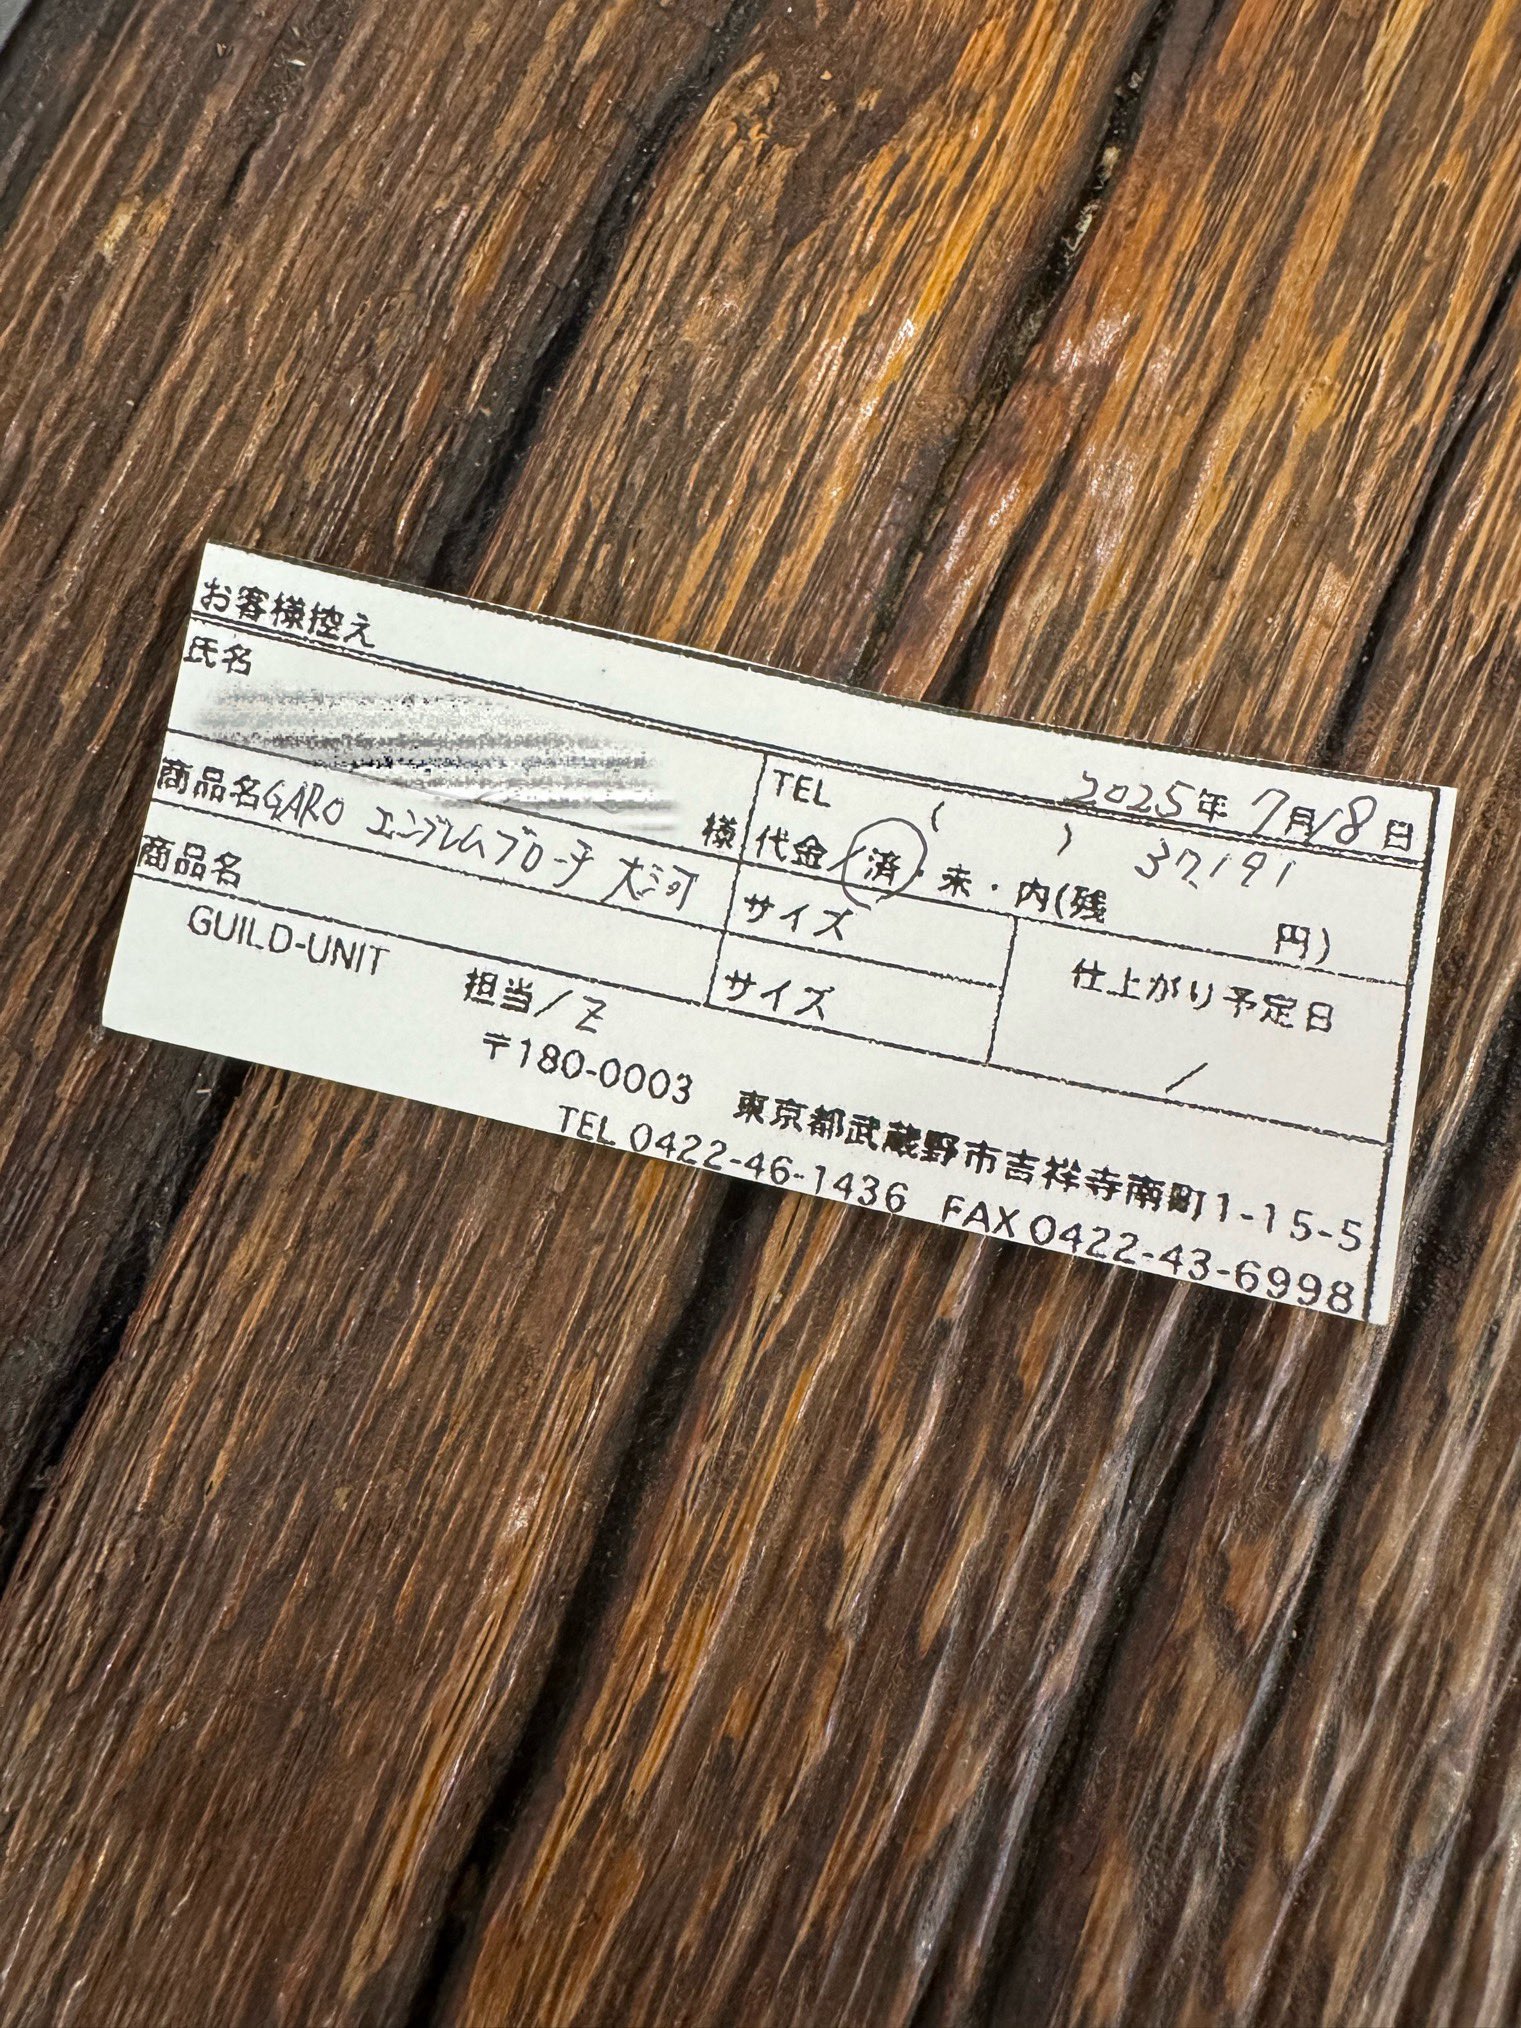 お客様控え
2025年 7月18日
氏名
様
TEL ( )
37,191
代金/済・未・内(残 円)
商品名GARO エンブレムブローチ 大河
サイズ
仕上がり予定日
商品名
サイズ
/
GUILD-UNIT 担当/Z
〒180-0003 東京都武蔵野市吉祥寺南町1-15-5
TEL 0422-46-1436 FAX 0422-43-6998